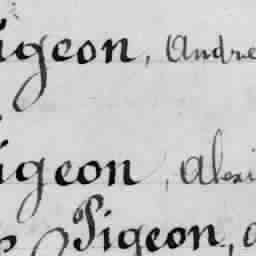 igeon, Andre
igeon, Alexi
Pigeon,